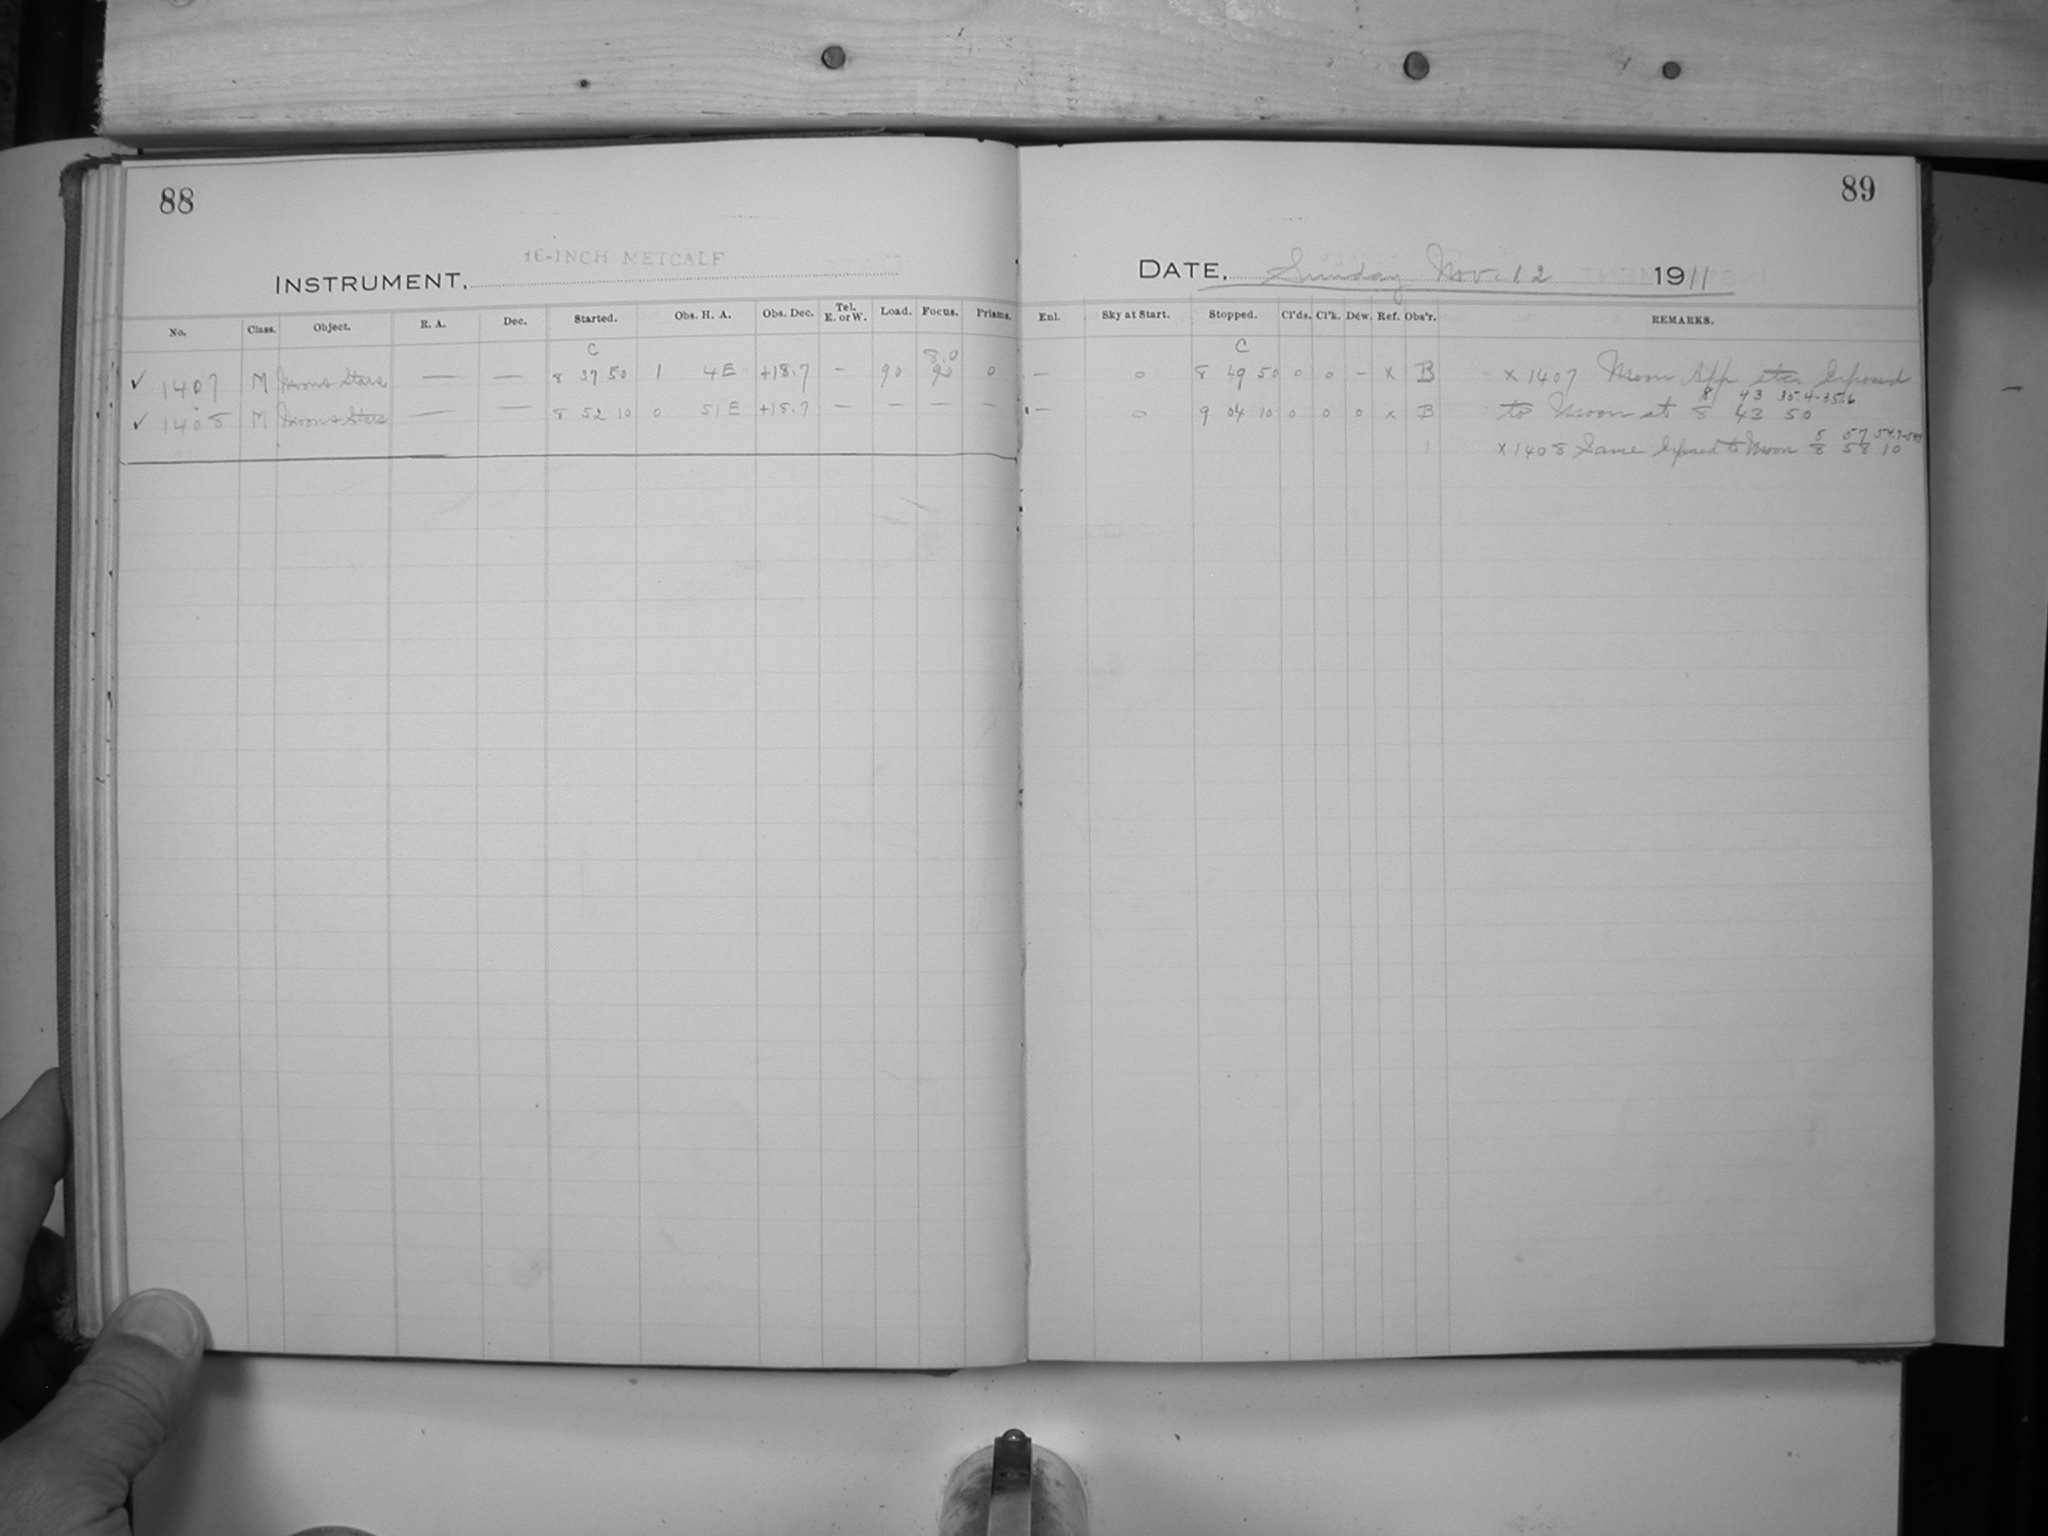 88
89
INSTRUMENT, 16-INCH METCALF
DATE, Sunday Nov. 12 1911
No. Class. Object. R. A. Dec. Started. Obs. H. A. Obs. Dec. Tel. E. or W. Load. Focus. Prisms. Enl. Sky at Start. Stopped. Cl'ds. Cl'k. Dew. Ref. Obs'r. REMARKS.
C 8.0 C
✓ 1407 M Moon & Stars — — 8 37 50 1 4 E +18.7 — 90 90 0 — 0 8 49 50 0 0 — x B x 1407 Moon App etc. Exposed
8 43 35.4-35.6
✓ 1408 M Moon & Stars — — 8 52 10 0 51 E +18.7 — — — — — 0 9 04 10 0 0 0 x B to Moon at 8 43 50
8 57
x 1408 Same Exposed to Moon 8 58 10